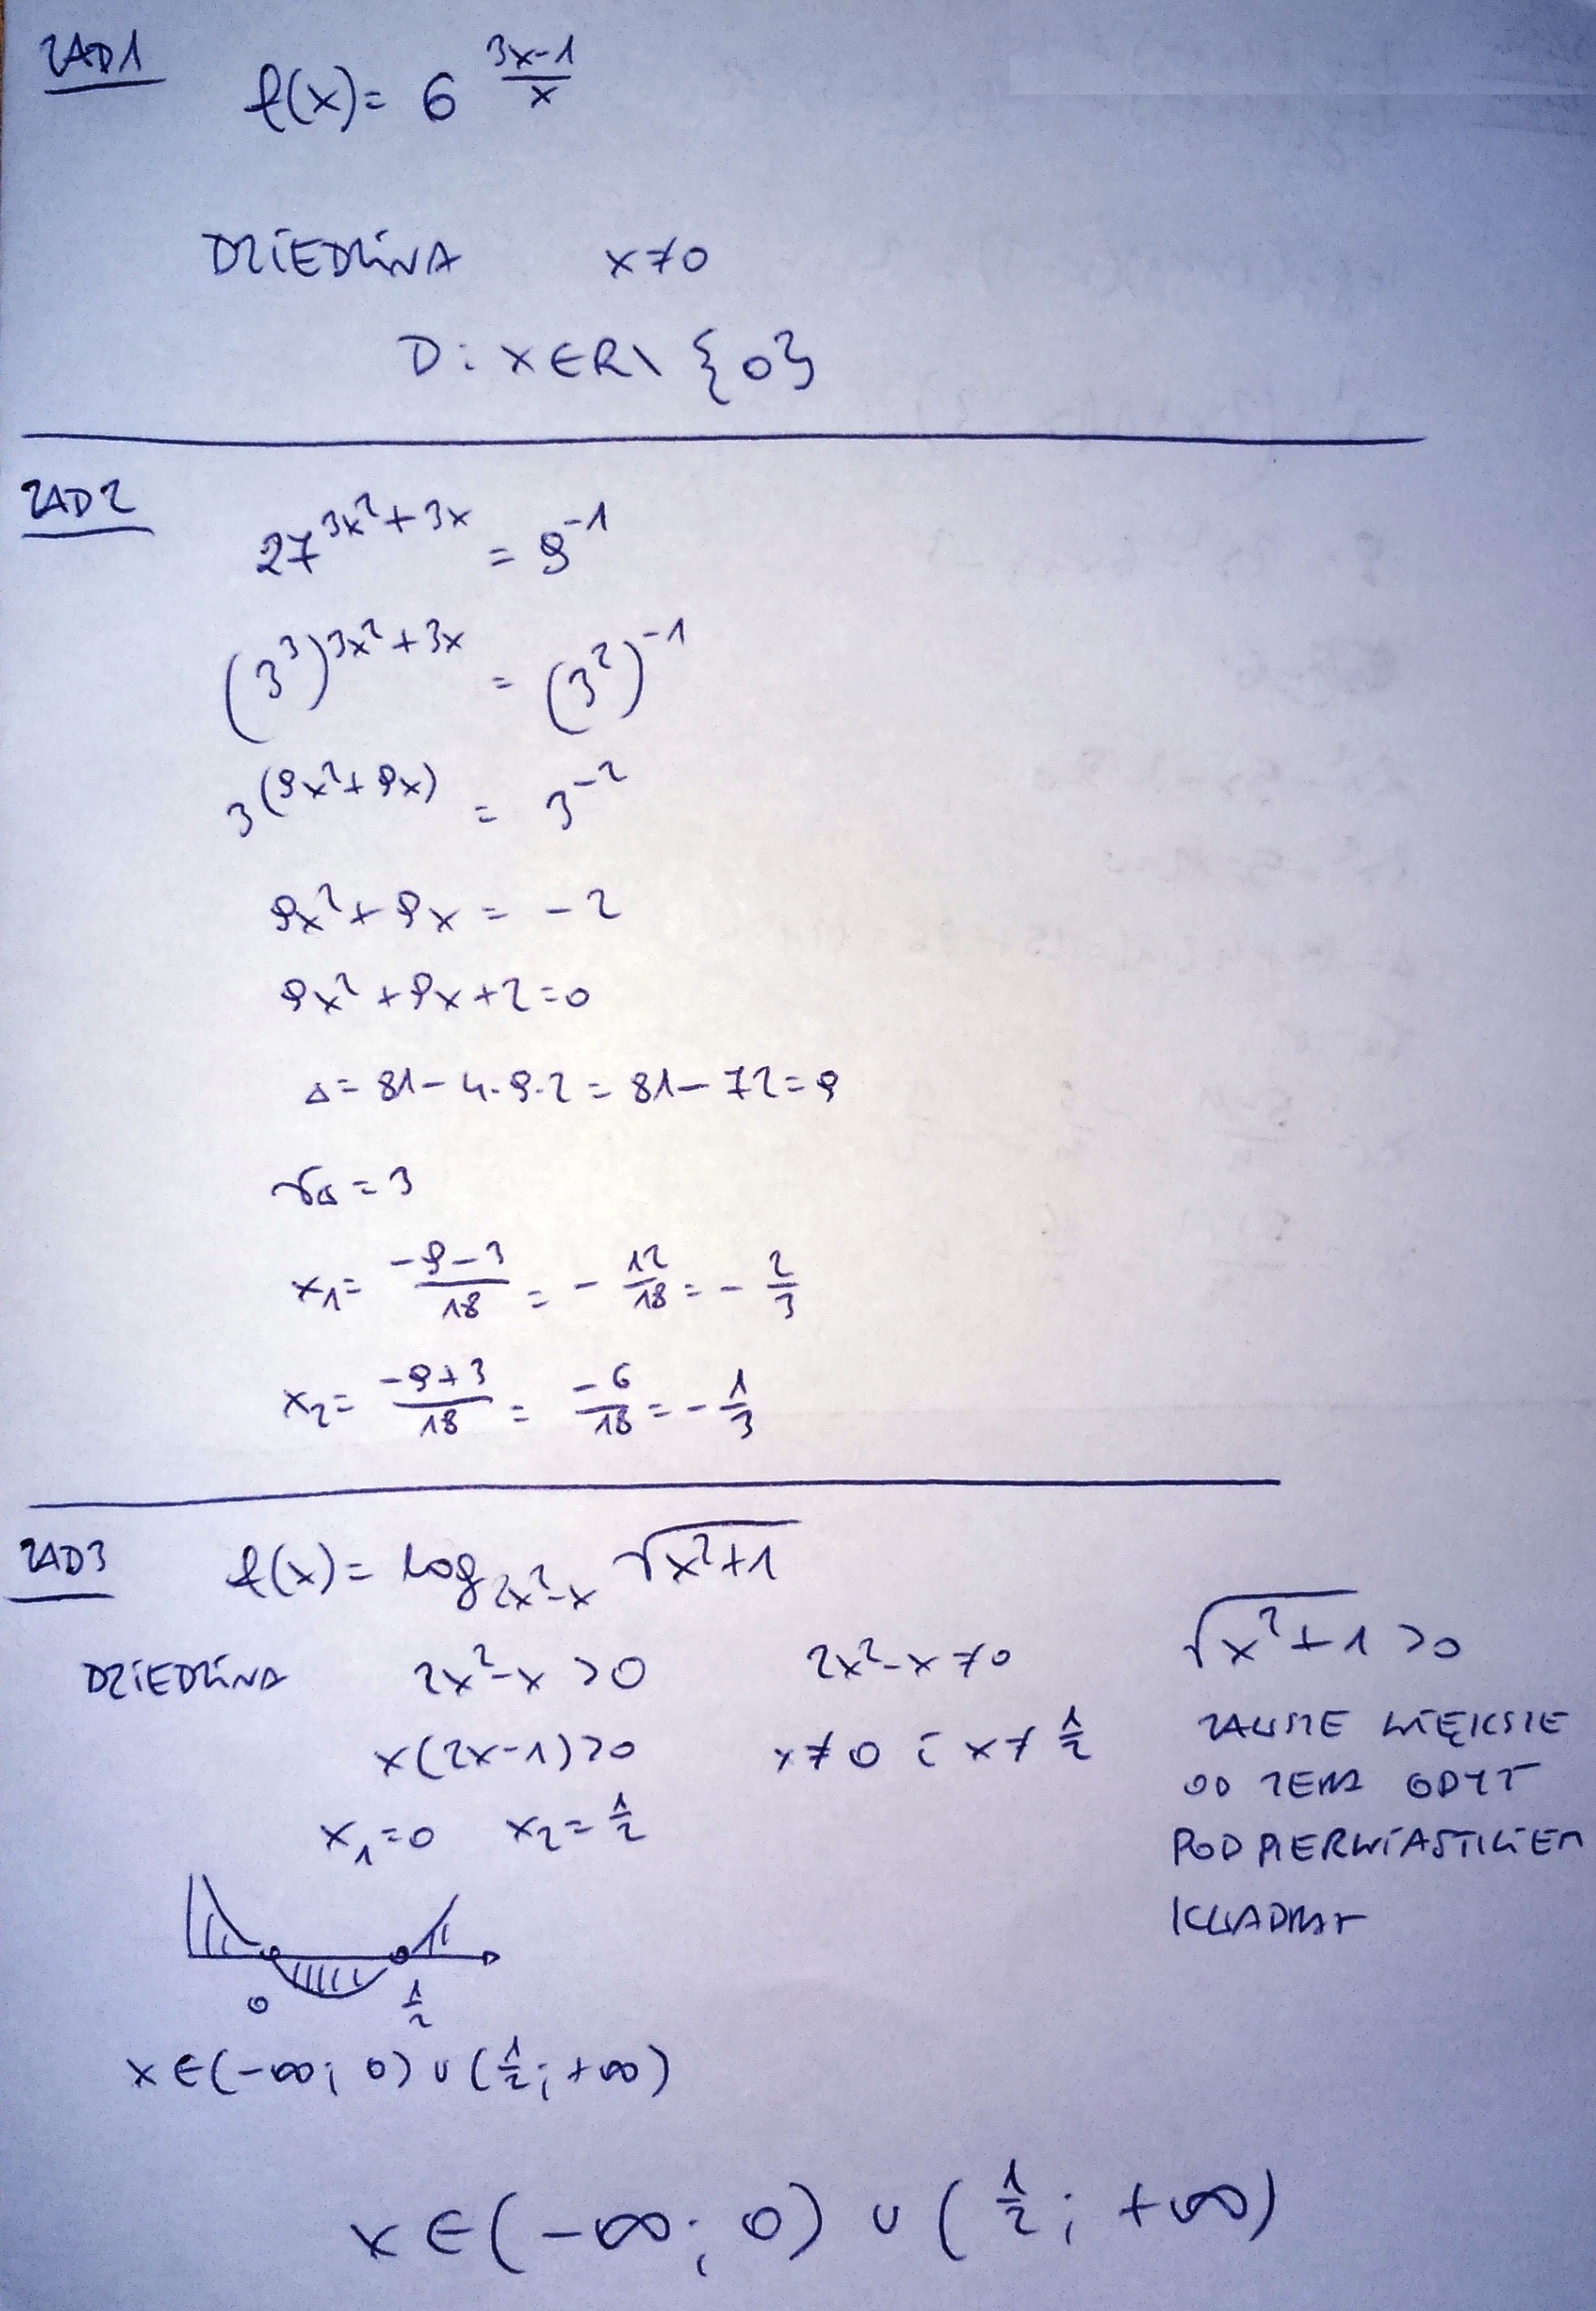 ZAD1
f(x) = 6^((3x-1)/x)
DZIEDZINA x≠0
D: x∈R\{0}
ZAD2
27^(3x²+3x) = 9^(-1)
(3³)^(3x²+3x) = (3²)^(-1)
3^(9x²+9x) = 3^(-2)
9x²+9x = -2
9x²+9x+2=0
Δ = 81-4·9·2 = 81-72 = 9
√Δ = 3
x₁ = (-9-3)/18 = -12/18 = -2/3
x₂ = (-9+3)/18 = -6/18 = -1/3
ZAD3
f(x) = log_(2x²-x) √(x²+1)
DZIEDZINA 2x²-x >0
x(2x-1)>0
x₁=0 x₂=1/2
0 1/2
x∈(-∞; 0)∪(1/2; +∞)
2x²-x≠0
x≠0 i x≠1/2
√(x²+1) >0
ZAWSZE WIĘKSZE
OD ZERA GDYŻ
POD PIERWIASTKIEM
KWADRAT
x∈(-∞; 0) ∪ (1/2; +∞)